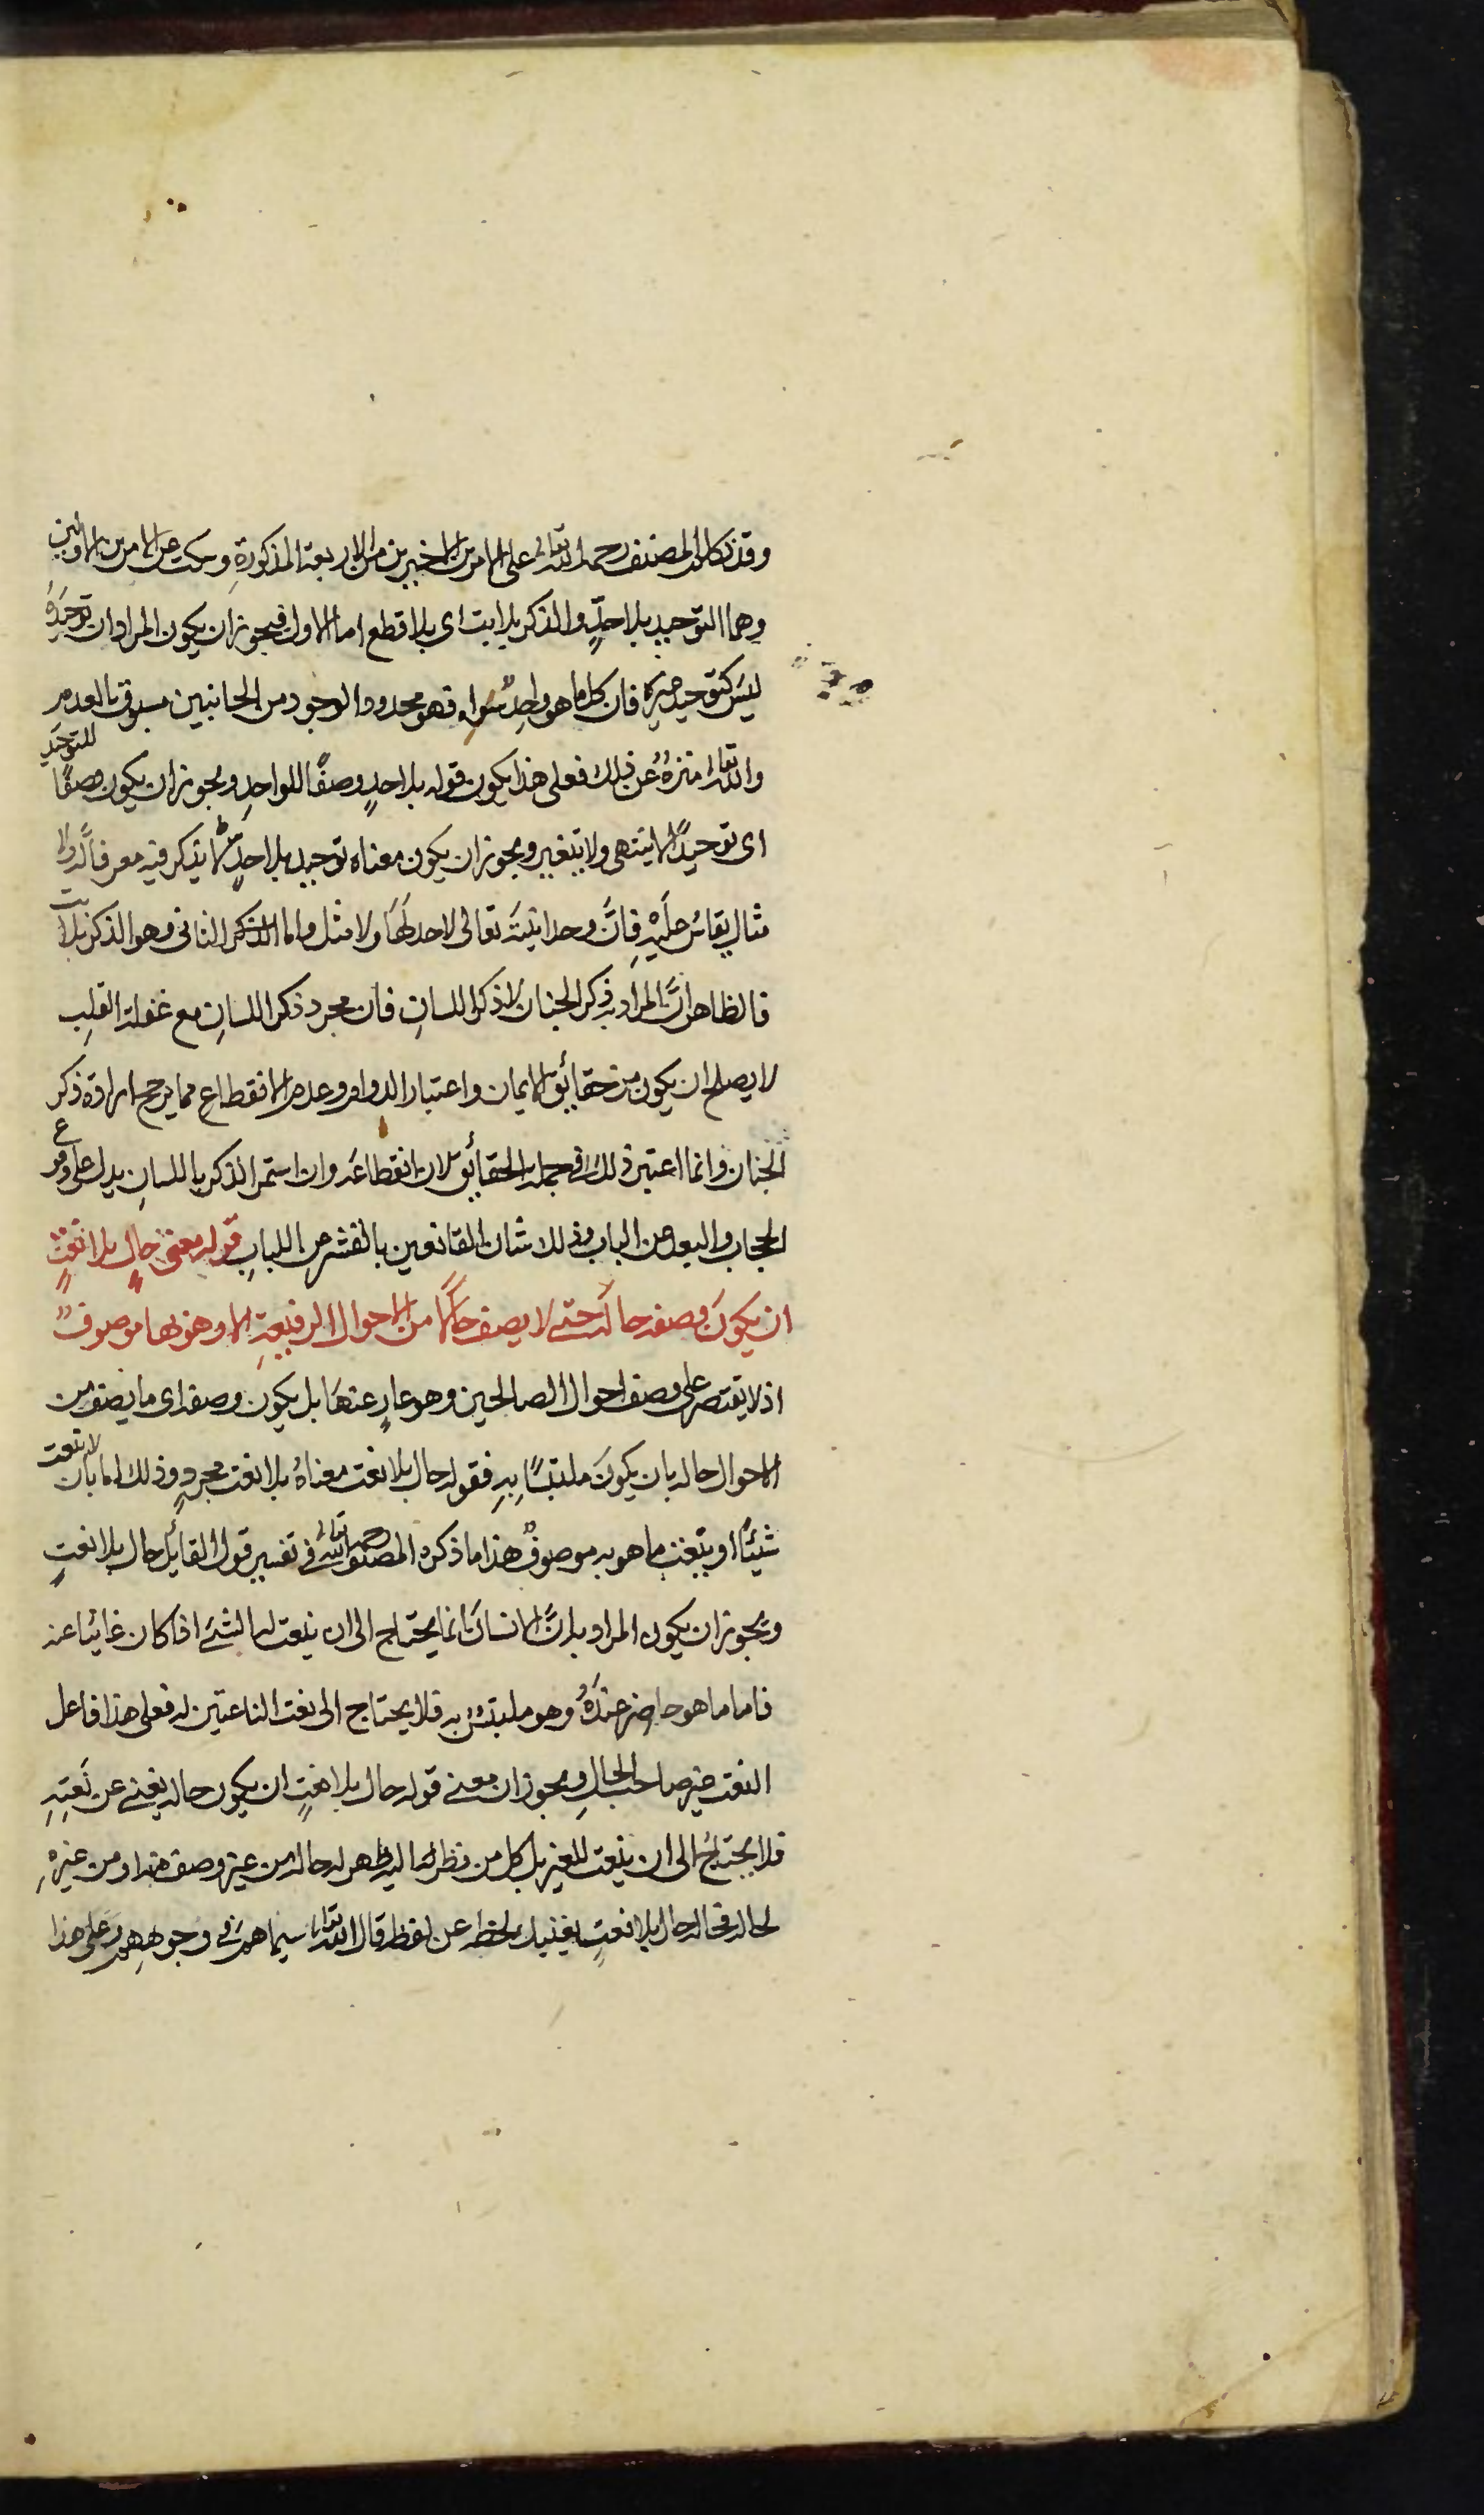 وقد تكلم المصنف رحمه الله تعالى على الامرين الاخيرين من الاربعة المذكورة وسكت عن الامرين الاولين
وهما التوحيد بلا حدٍّ والذكر بلا بت اى بلا قطع اما الاول فيجوز ان يكون المراد ان توحيده
ليس كتوحيد غيره فان كل ما هو واحد سواه فهو محدود الوجود من الجانبين مسبوق بالعدم
والله تعالى منزه عن ذلك فعلى هذا يكون قوله بلا حدٍ وصفًا للواحد ويجوز ان يكون وصفًا للتوحيد
اى توحيدًا لا ينتهى ولا يتغير ويجوز ان يكون معناه توحيد بلا حدٍّ يذكر فيه معرفا له ولا
مثال يقاس عليه فانّ وحدانيته تعالى لا حد لها ولا مثل واما الذكر الثانى وهو الذكر بلا بت
فالظاهر انّ المراد به ذكر الجنان لا ذكر اللسان فان مجرد ذكر اللسان مع غفلة القلب
لا يصلح ان يكون من حقائق الايمان واعتبار الدوام وعدم الانقطاع مما يرجح ارادة ذكر
الجنان وانما اعتبر ذلك فى جملة الحقائق لان انقطاعه وان استمر الذكر باللسان يدل على وقوع
الحجاب والبعد من الباب وذلك شان القانعين بالقشر عن اللباب قوله معنى حالٍ بلا نعتٍ
ان يكون وصفه حاله حتى لا يصف حالًا من الاحوال الرفيعة الا وهو بها موصوف
اذ لا يقتصر على وصف احوال الصالحين وهو عارٍ عنها بل يكون وصفه اى ما يصف من
الاحوال حاله بان يكون ملتبسًا به فقوله حال بلا نعت معناه بلا نعت مجردٍ وذلك اما بان لا ينعت
شيئًا او ينعت ما هو به موصوف هذا ما ذكره المصنف رحمه الله تعالى فى تفسير قول القائل حال بلا نعتٍ
ويجوز ان يكون المراد به انّ الانسان انما يحتاج الى ان ينعت له الشئ اذا كان غائبا عنه
فاما ما هو حاضر عنده وهو ملتبس به فلا يحتاج الى نعت الناعتين له فعلى هذا فاعل
النعت غير صاحب الحال ويجوز ان معنى قوله حال بلا نعتٍ ان يكون حاله يغنى عن نعته
فلا يحتاج الى ان ينعت للغير بل كل من نظر اليه ظهر له حاله من غير وصف منه او من غيره
لحاله فحاله حال بلا نعتٍ يغنيك لحظه عن لفظه قال الله تعالى سيماهم فى وجوههم وعلى هذا